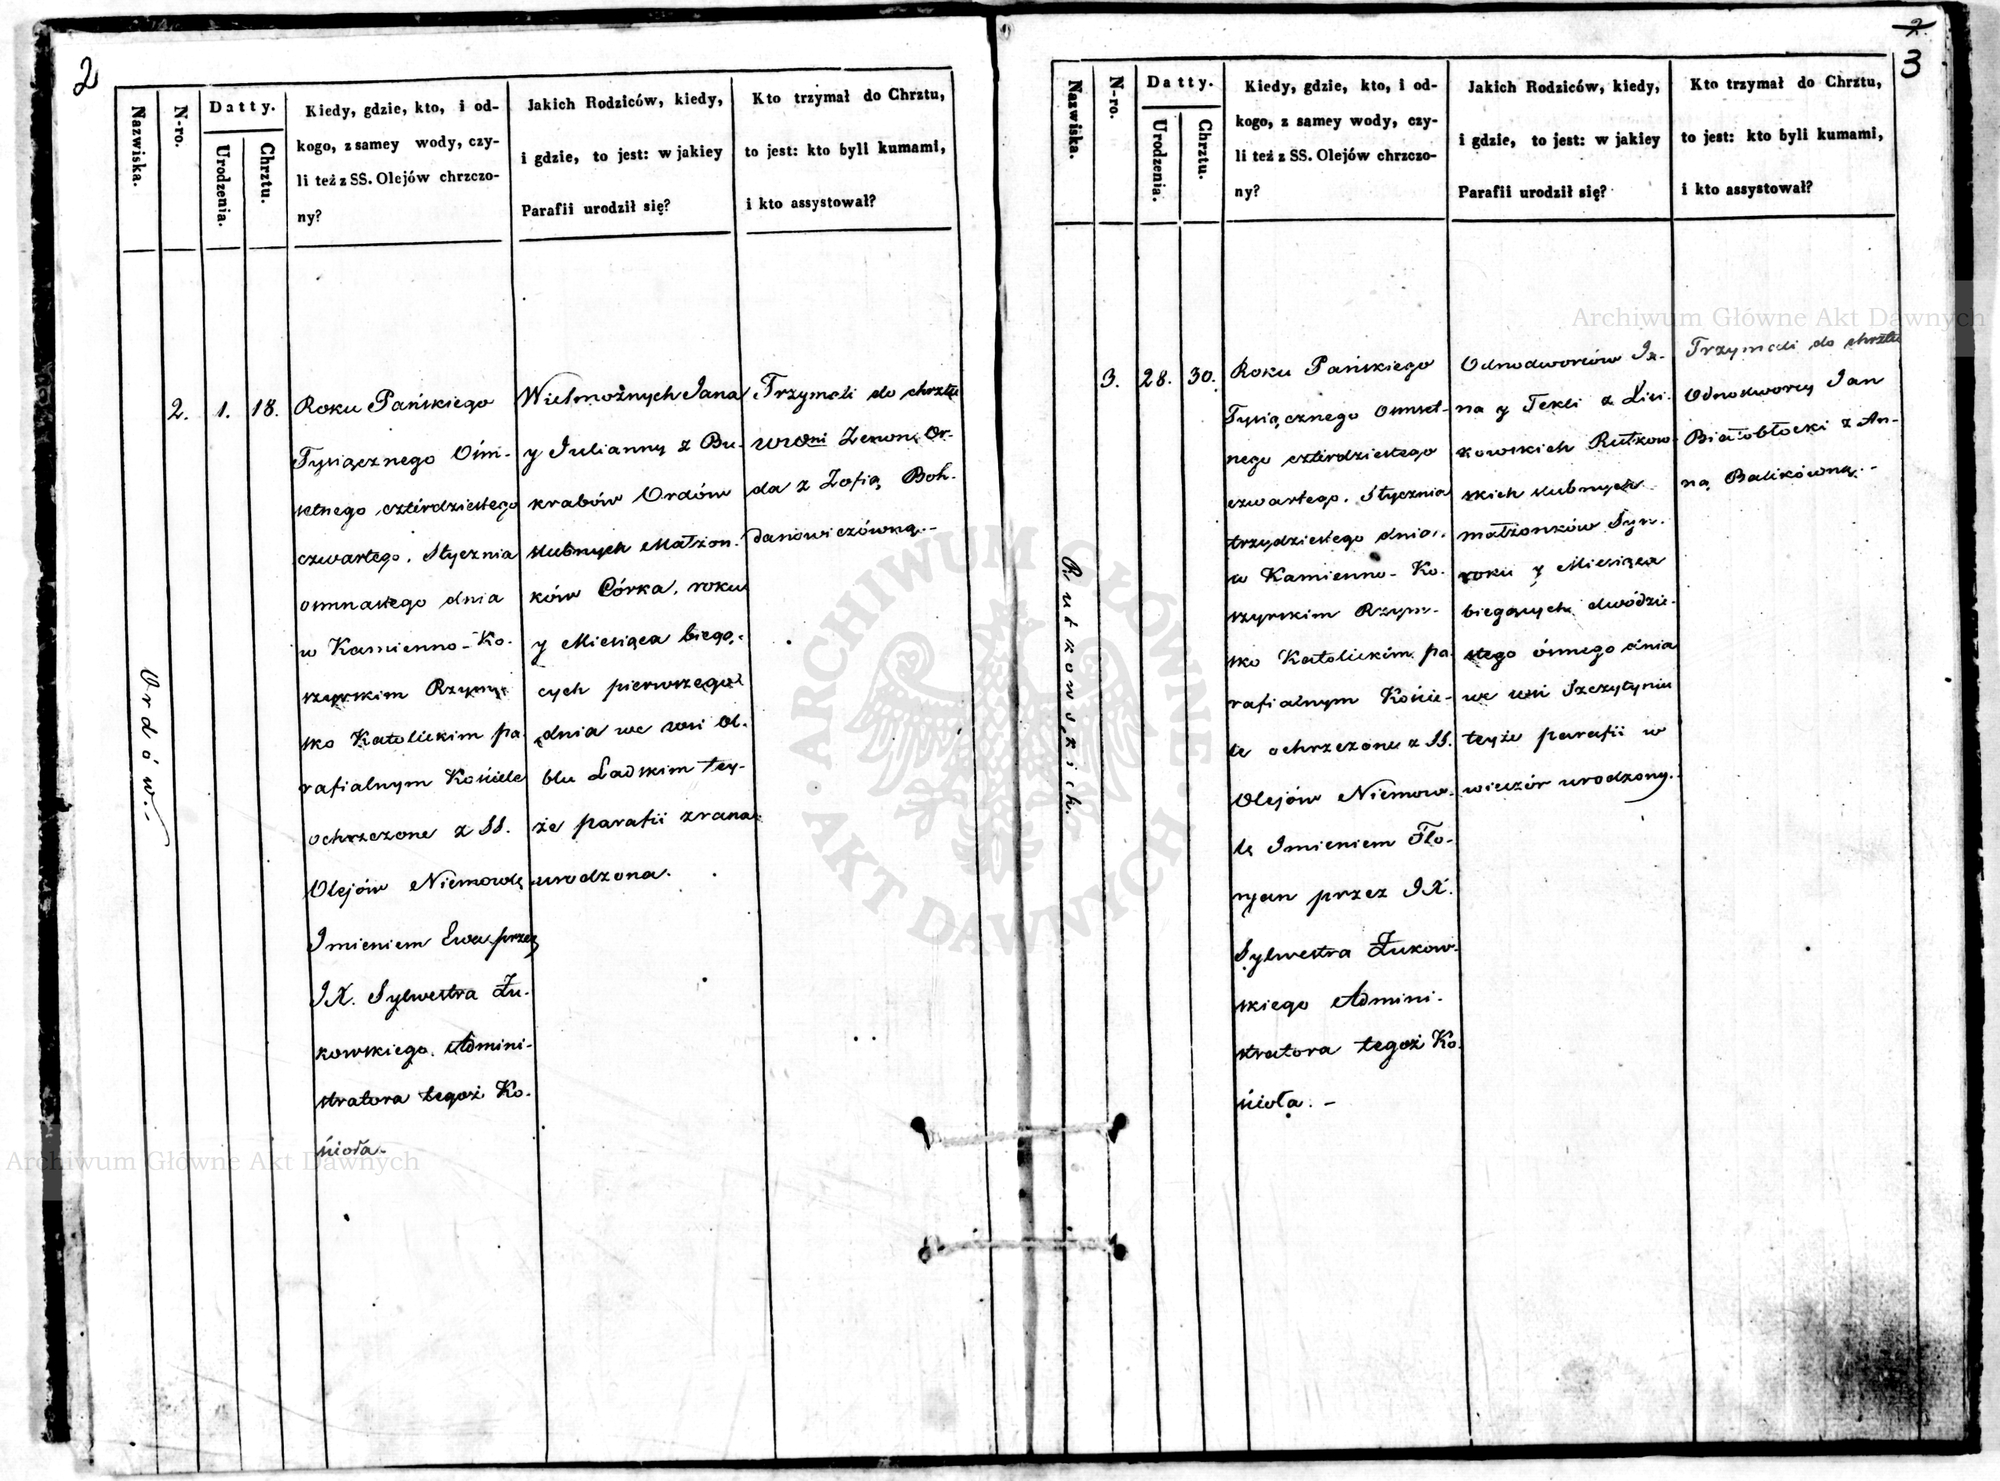 2
Nazwiska.
N-ro.
Datty.
Urodzenia.
Chrztu.
Kiedy, gdzie, kto, i od-
kogo, z samey wody, czy-
li też z SS. Olejów chrzczo-
ny?
Jakich Rodziców, kiedy,
i gdzie, to jest: w jakiey
Parafii urodził się?
Kto trzymał do Chrztu,
to jest: kto byli kumami,
i kto assystował?
Ordów.-
2.
1.
18.
Roku Pańskiego
Tysiącznego Ośm-
setnego czterdziestego
czwartego. Stycznia
osmnastego dnia
w Kamienno-Ko-
szyrskim Rzym-
sko Katolickim pa-
rafialnym Kościele
ochrzczone z SS.
Olejów Niemowlę
Imieniem Ewa przez
IX. Sylwestra Żu-
kowskiego. Admini-
stratora tegoż Ko-
ścioła.
Wielmożnych Jana
y Julianny z Bu-
krabów Ordów
slubnych Małżon-
ków Córka, roku
y Miesiąca biegą-
cych pierwszego
dnia we wsi Ol-
blu Ladskim tey-
że parafii zrana
urodzona.
Trzymali do chrztu
WWni Zenon Or-
da z Zofią Boh-
danowiczówną.-
2.
3
Nazwiska.
N-ro.
Datty.
Urodzenia.
Chrztu.
Kiedy, gdzie, kto, i od-
kogo, z samey wody, czy-
li też z SS. Olejów chrzczo-
ny?
Jakich Rodziców, kiedy,
i gdzie, to jest: w jakiey
Parafii urodził się?
Kto trzymał do Chrztu,
to jest: kto byli kumami,
i kto assystował?
Rutkowskich.
3.
28.
30.
Roku Pańskiego
Tysiącznego Osmset-
nego czterdziestego
czwartego. Stycznia
trzydziestego dnia,
w Kamienno-Ko-
szyrskim Rzym-
sko Katolickim pa-
rafialnym Koście-
le ochrzczone z SS.
Olejów Niemow-
lę Imieniem Flo-
ryan przez IX.
Sylwestra Żukow-
skiego Admini-
stratora tegoż Ko-
ścioła. -
Odnodworców Ja-
na y Tekli z Lisi-
kowskich Rutkow-
skich slubnych
małżonków Syn.
roku y Miesiąca
biegących dwódzie-
stego ósmego dnia
we wsi Szczytyniu
teyże parafii w
wieczór urodzony.
Trzymali do chrztu
Odnodworcy Jan
Białobłocki z An-
ną Balikówną.-
Archiwum Główne Akt Dawnych
Archiwum Główne Akt Dawnych
ARCHIWUM GŁÓWNE AKT DAWNYCH